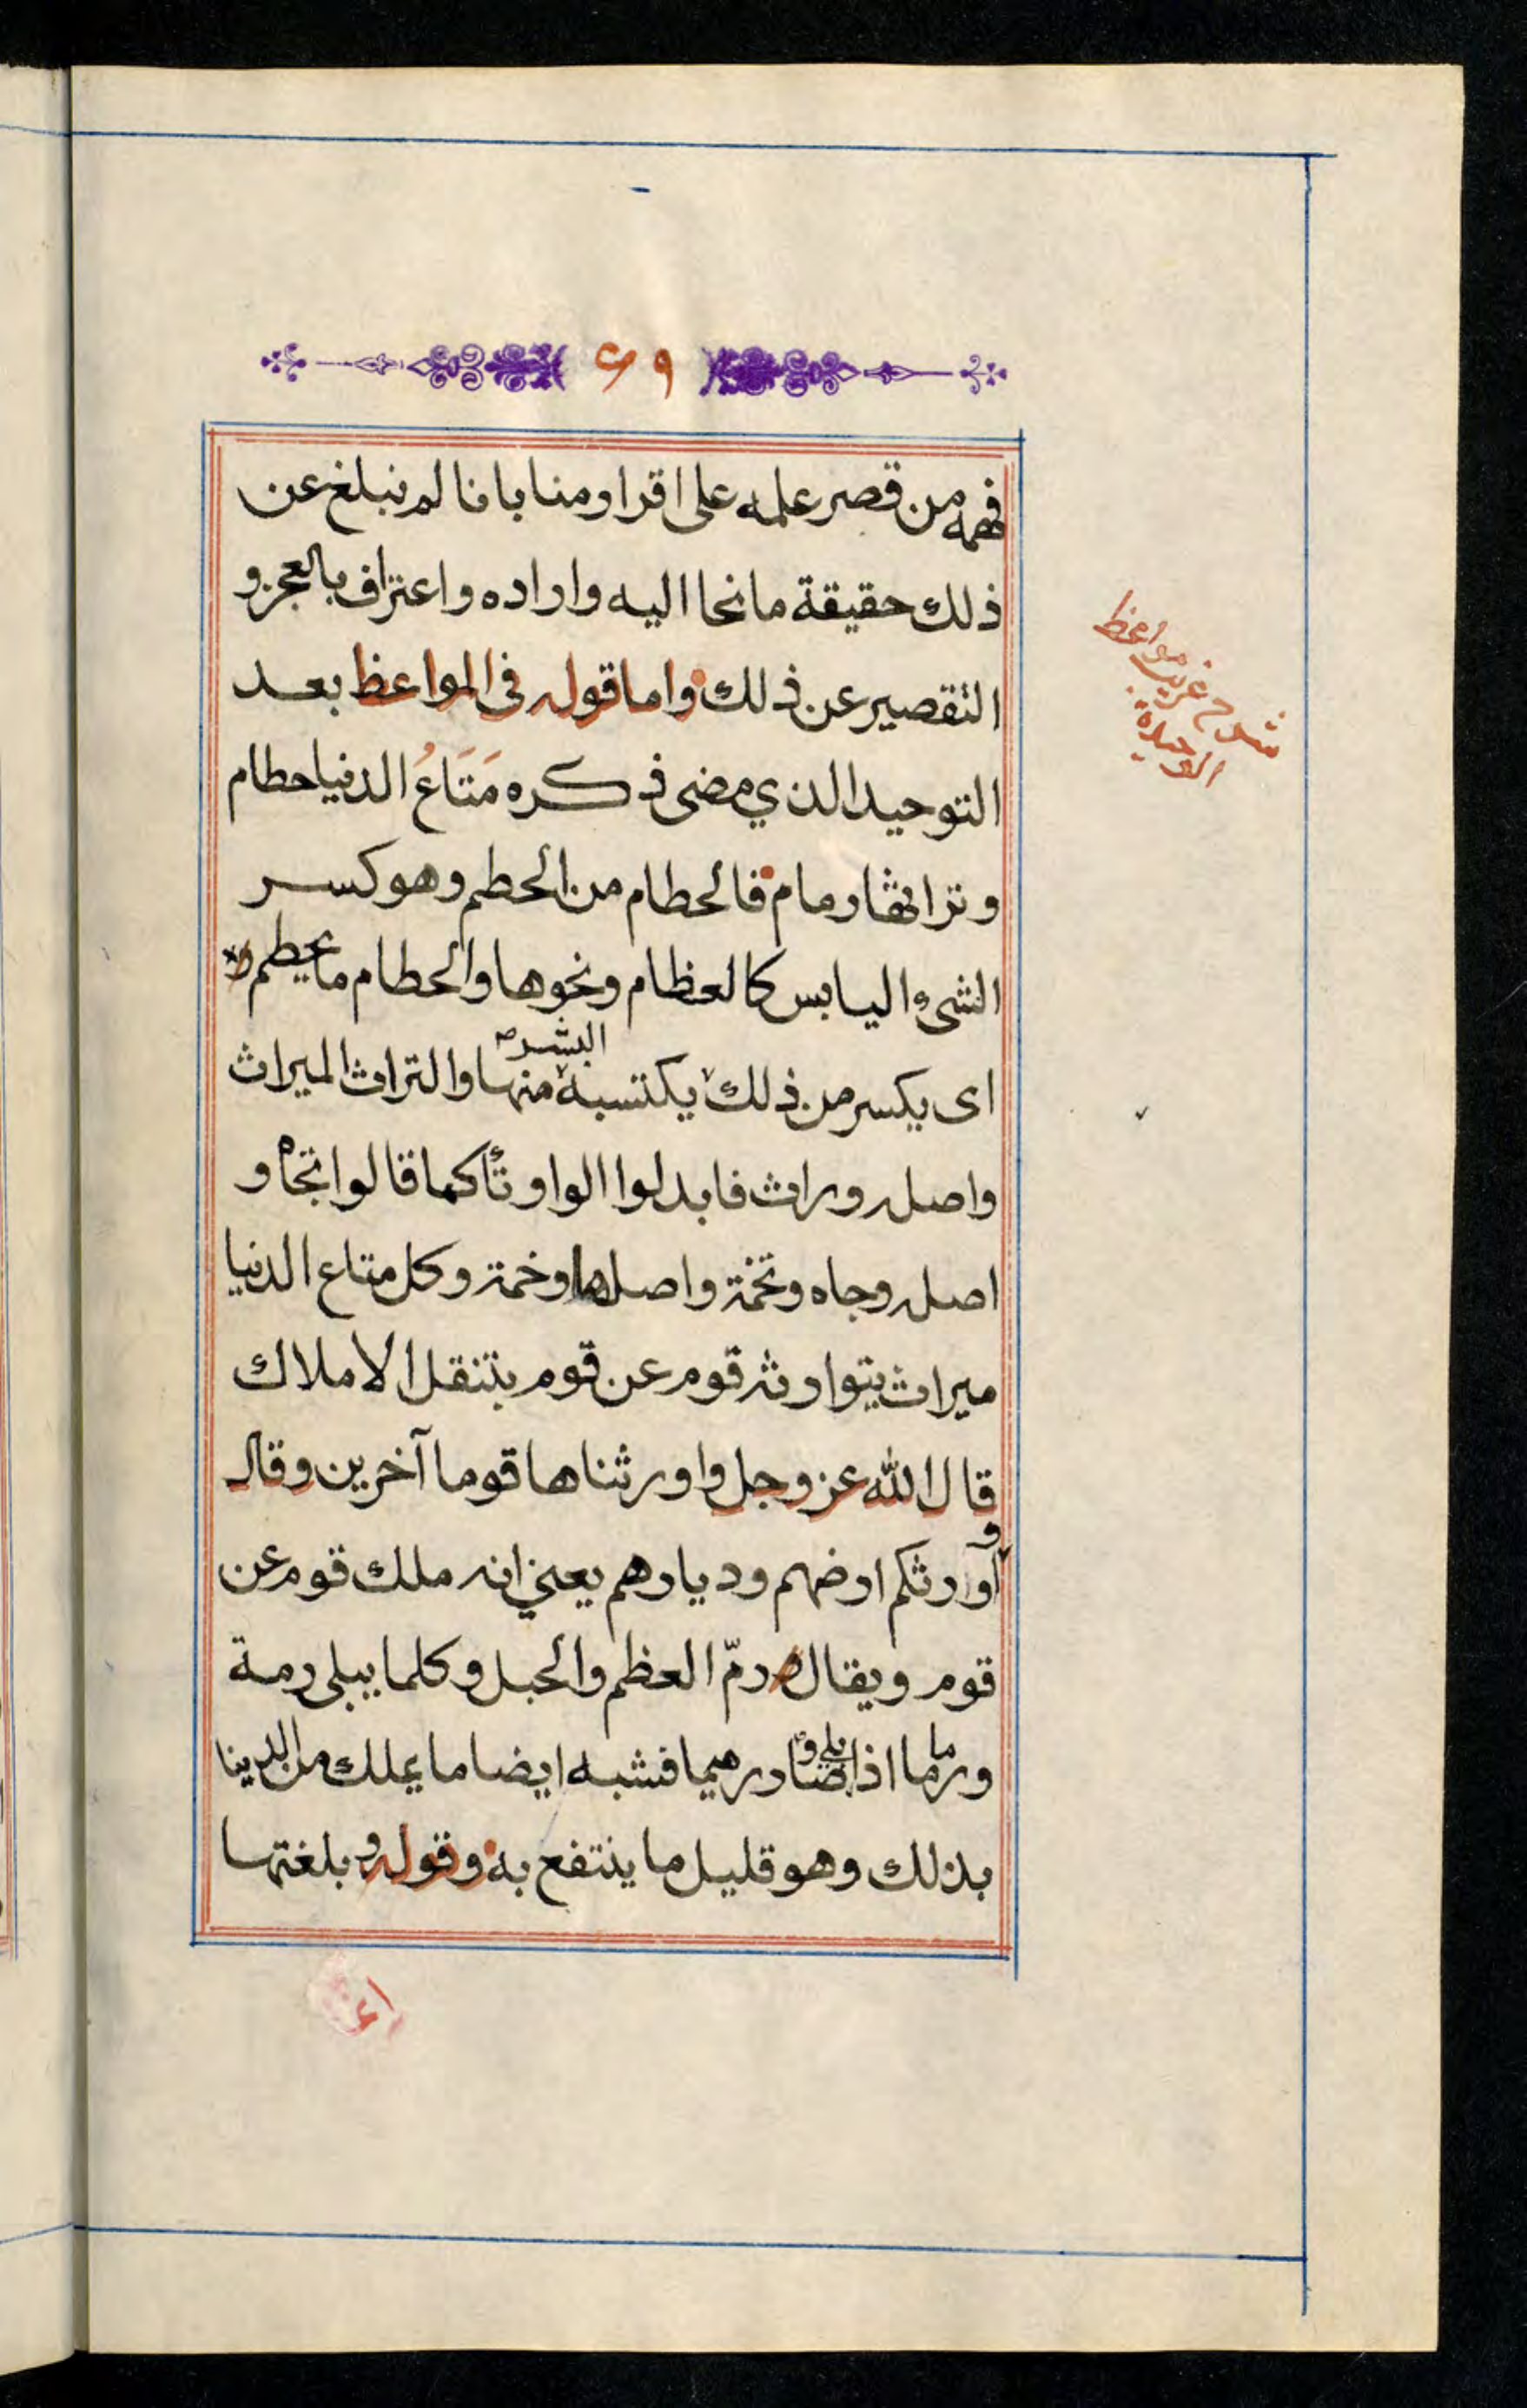 ٦٩
فهمه من قصر علمه على اقرار منا بانا لم نبلغ عن
ذلك حقيقة ما نحا اليه واراده واعتراف بالعجز و
التقصير عن ذلك واما قوله فى المواعظ بعد
التوحيد الذي مضى ذكره مَتَاعُ الدنيا حطام
وتراثها رمام فالحطام من الحطم وهو كسر
الشىء اليابس كالعظام ونحوها والحطام ما يحطم
اى يكسر من ذلك يكتسبه البشر منها والتراث الميراث
واصله وراث فابدلوا الواو تاء كما قالوا تجاه و
اصله وجاه وتخمة واصلها وخمة وكل متاع الدنيا
ميراث يتوارثه قوم عن قوم بتنقل الاملاك
قال الله عز وجل واورثناها قوما آخرين وقال
واورثكم ارضهم وديارهم يعني انه ملك قوم عن
قوم ويقال رمّ العظم والحبل وكلما يبلى رمة
ورماما اذا بلي وصار رميما فشبه ايضا ما يملك من الدنيا
بذلك وهو قليل ما ينتفع به وقوله وبلغتها
شرح غريب مواعظ
الوحيدة